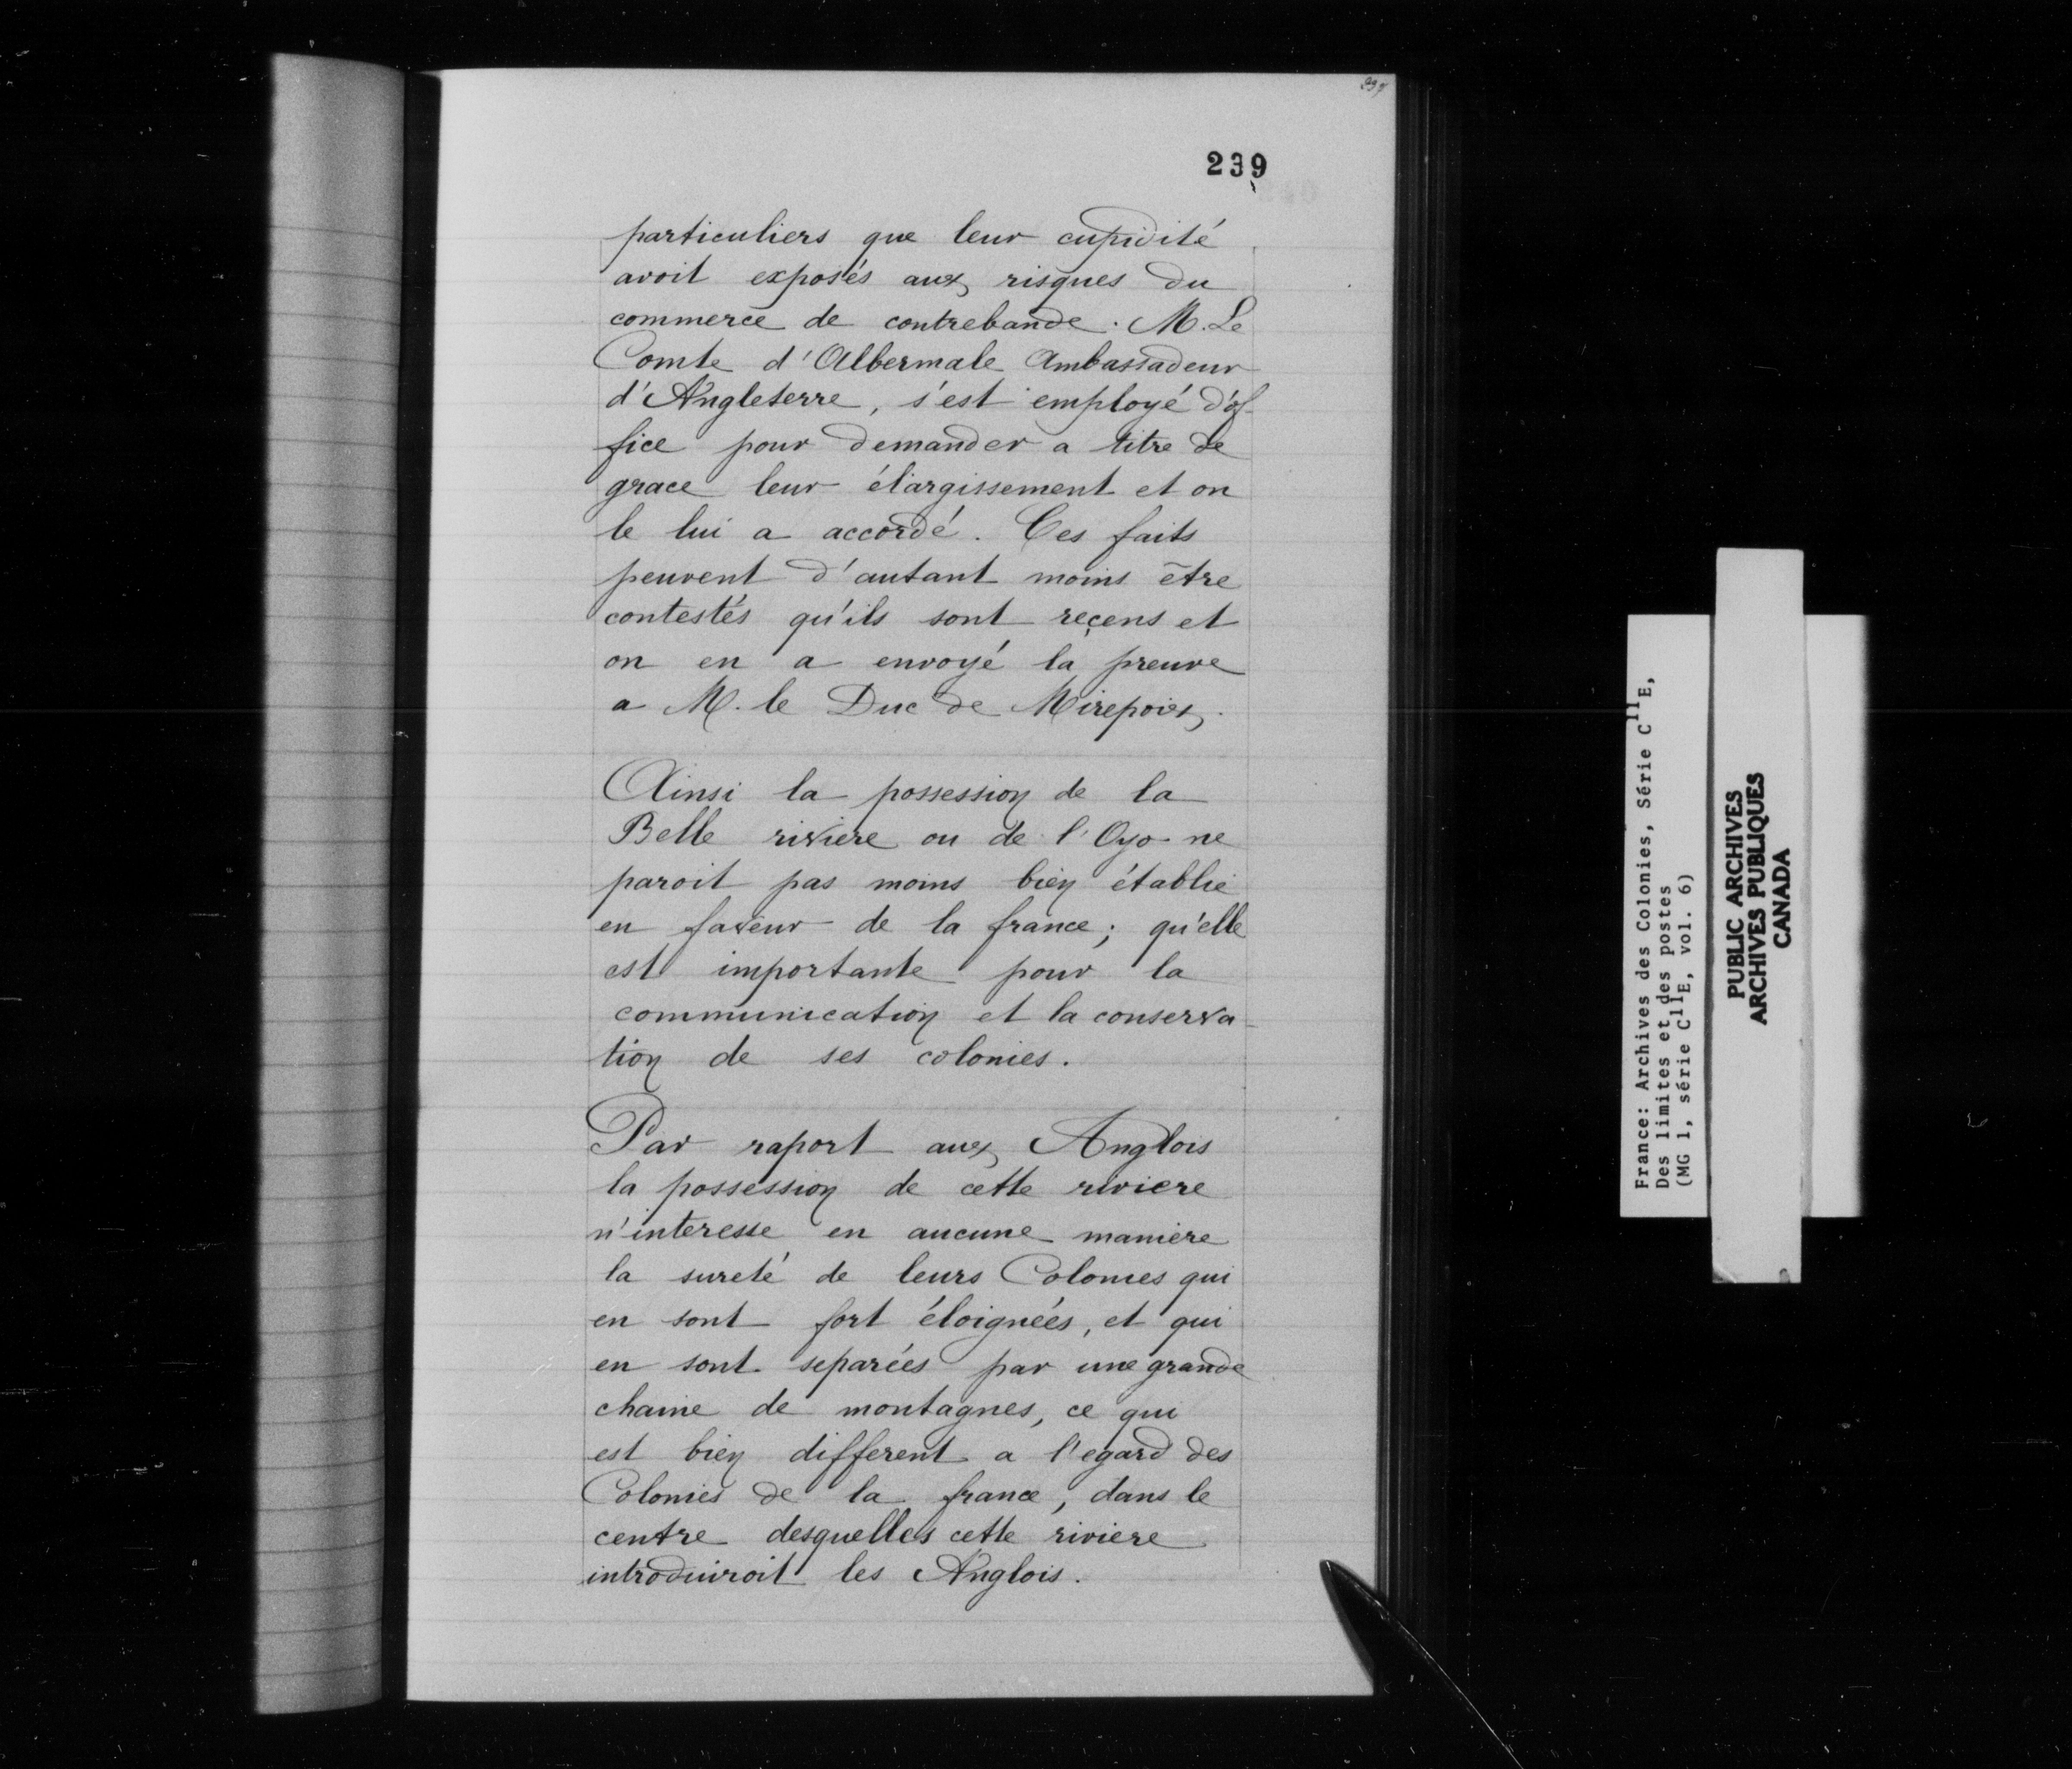 239
particuliers que leur cupidité
avoit exposés aux risques du
commerce de contrebande. M. Le
Comte d'Albermale Ambassadeur
d'Angleterre, s'est employé d'of-
fice pour demander a titre de
grace leur élargissement et on
le lui a accordé. Ces faits
peuvent d'autant moins être
contestés qu'ils sont reçens et
on en a envoyé la preuve
a M. le Duc de Mirepoix.
Ainsi la possession de la
Belle riviere ou de l'Oyo ne
paroit pas moins bien établie
en faveur de la france; qu'elle
est importante pour la
communication et la conserva-
tion de ses colonies.
Par raport aux Anglois
la possession de cette riviere
n'interesse en aucune maniere
la sureté de leurs Colonies qui
en sont fort éloignées, et qui
en sont separées par une grande
chaine de montagnes, ce qui
est bien different a l'egard des
Colonies de la france, dans le
centre desquelles cette riviere
introduiroit les Anglois.
France: Archives des Colonies, Série C11E,
Des limites et des postes
(MG 1, série C11E, vol. 6)
PUBLIC ARCHIVES
ARCHIVES PUBLIQUES
CANADA